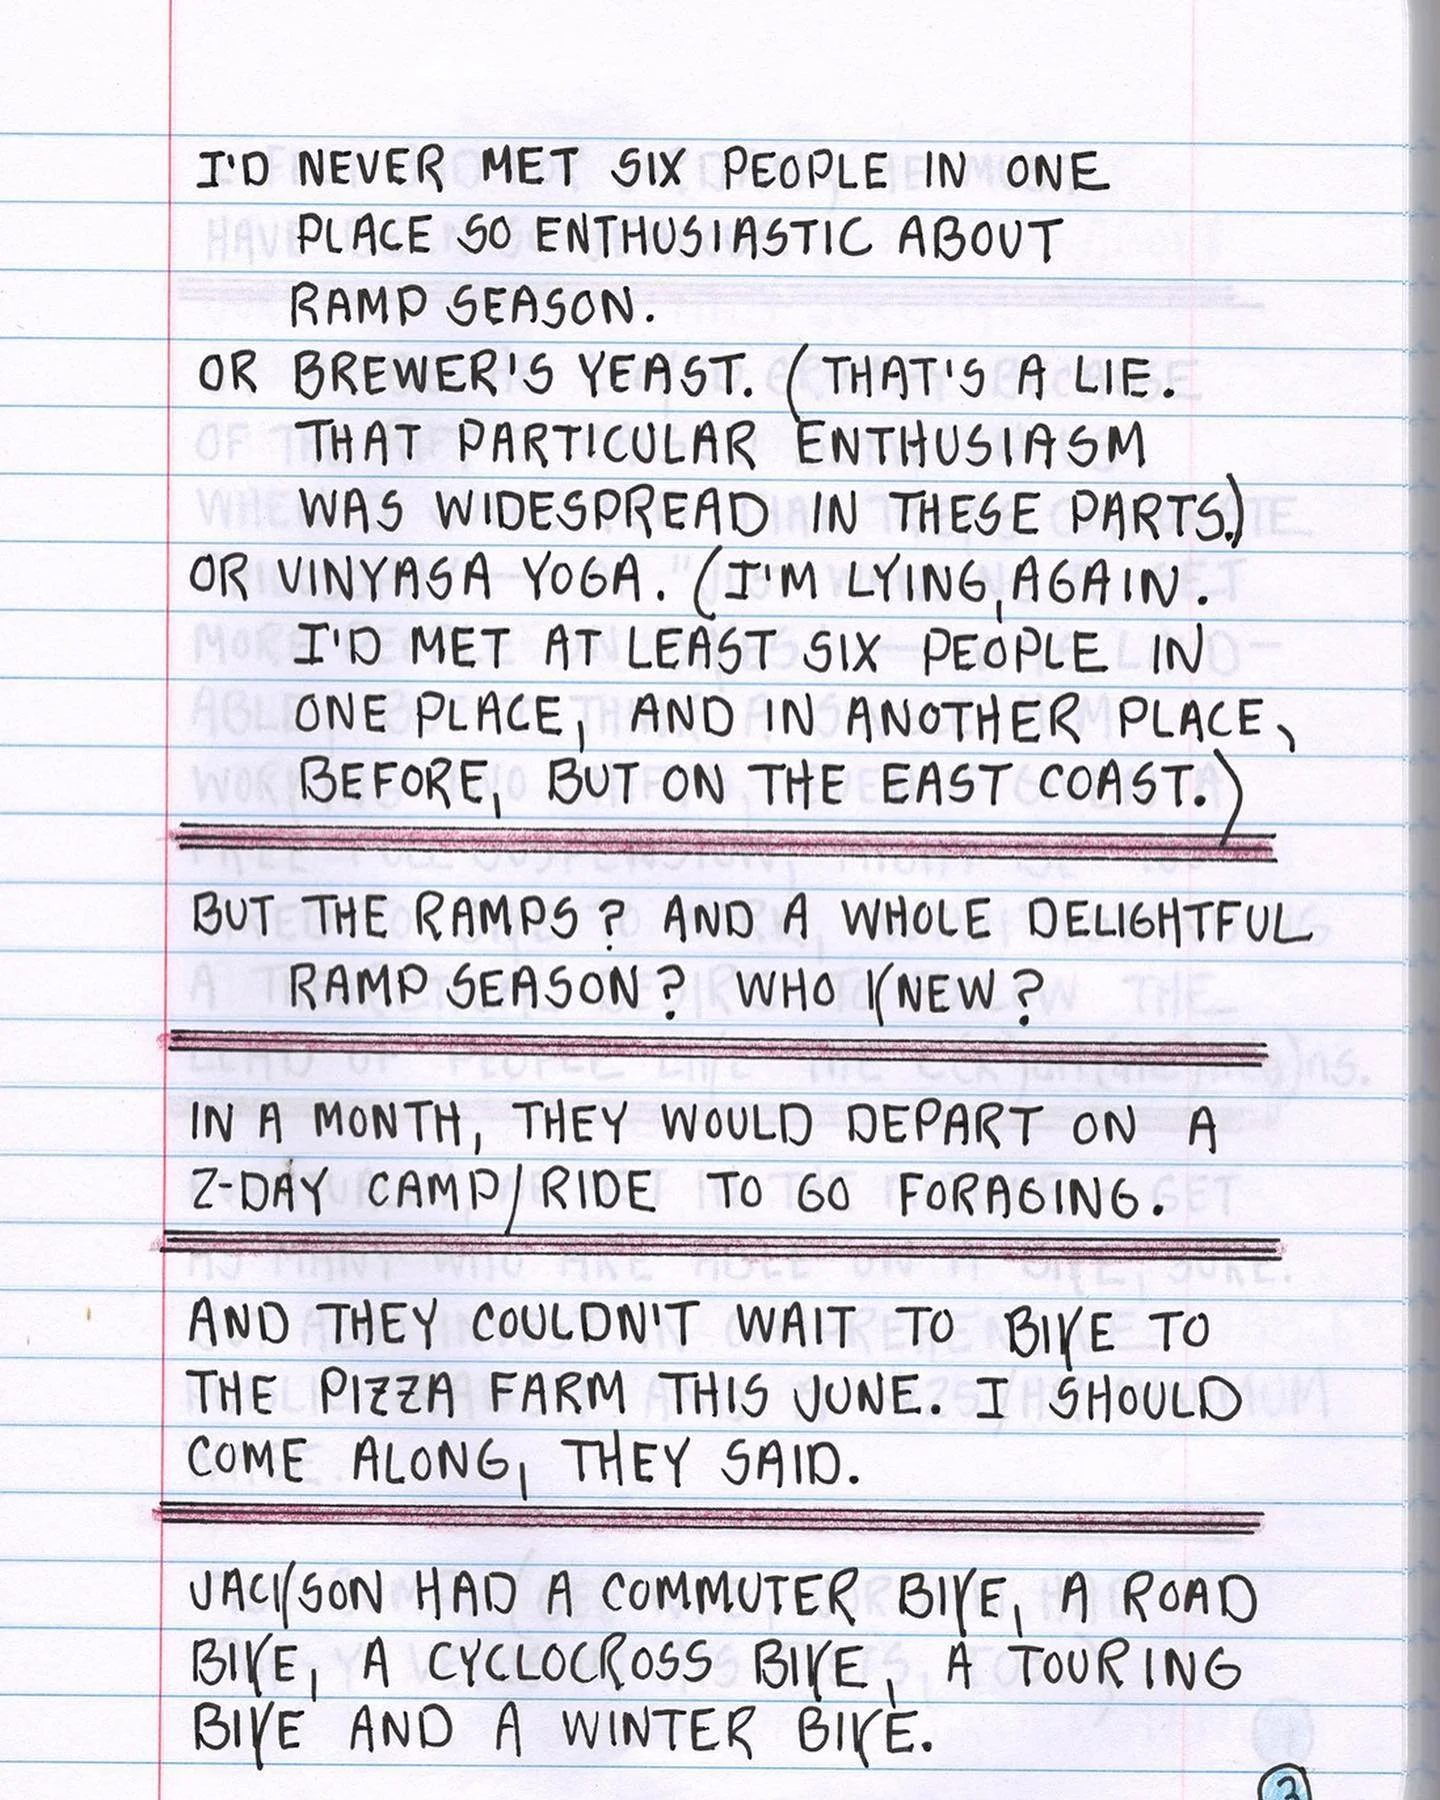 I'D NEVER MET SIX PEOPLE IN ONE
PLACE SO ENTHUSIASTIC ABOUT
RAMP SEASON.
OR BREWER'S YEAST. (THAT'S A LIE.
THAT PARTICULAR ENTHUSIASM
WAS WIDESPREAD IN THESE PARTS.)
OR VINYASA YOGA. (I'M LYING, AGAIN.
I'D MET AT LEAST SIX PEOPLE IN
ONE PLACE, AND IN ANOTHER PLACE,
BEFORE, BUT ON THE EAST COAST.)
BUT THE RAMPS? AND A WHOLE DELIGHTFUL
RAMP SEASON? WHO KNEW?
IN A MONTH, THEY WOULD DEPART ON A
2-DAY CAMP/RIDE TO GO FORAGING.
AND THEY COULDN'T WAIT TO BIKE TO
THE PIZZA FARM THIS JUNE. I SHOULD
COME ALONG, THEY SAID.
JACKSON HAD A COMMUTER BIKE, A ROAD
BIKE, A CYCLOCROSS BIKE, A TOURING
BIKE AND A WINTER BIKE.